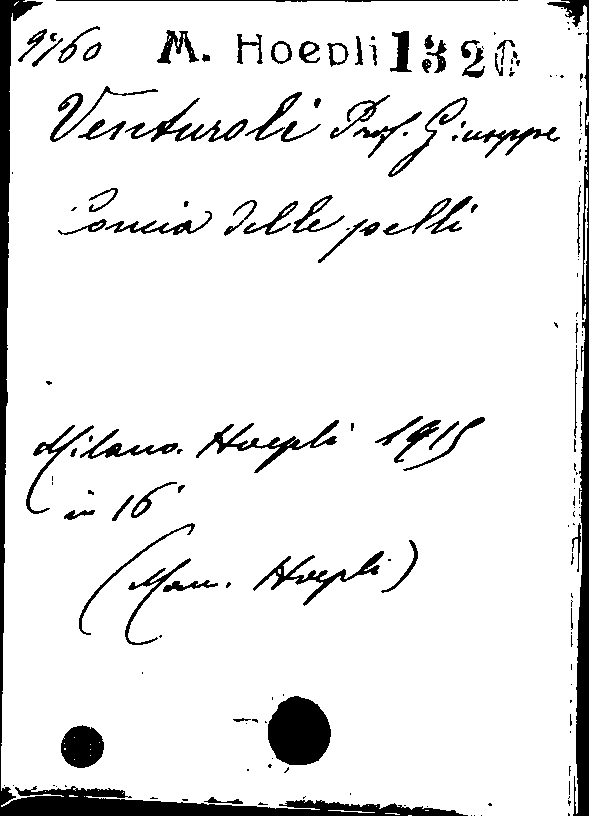 9760 M. Hoepli 1320
Venturoli Prof. Giuseppe
Concia delle pelli
Milano. Hoepli 1915
in 16°
(Man. Hoepli)